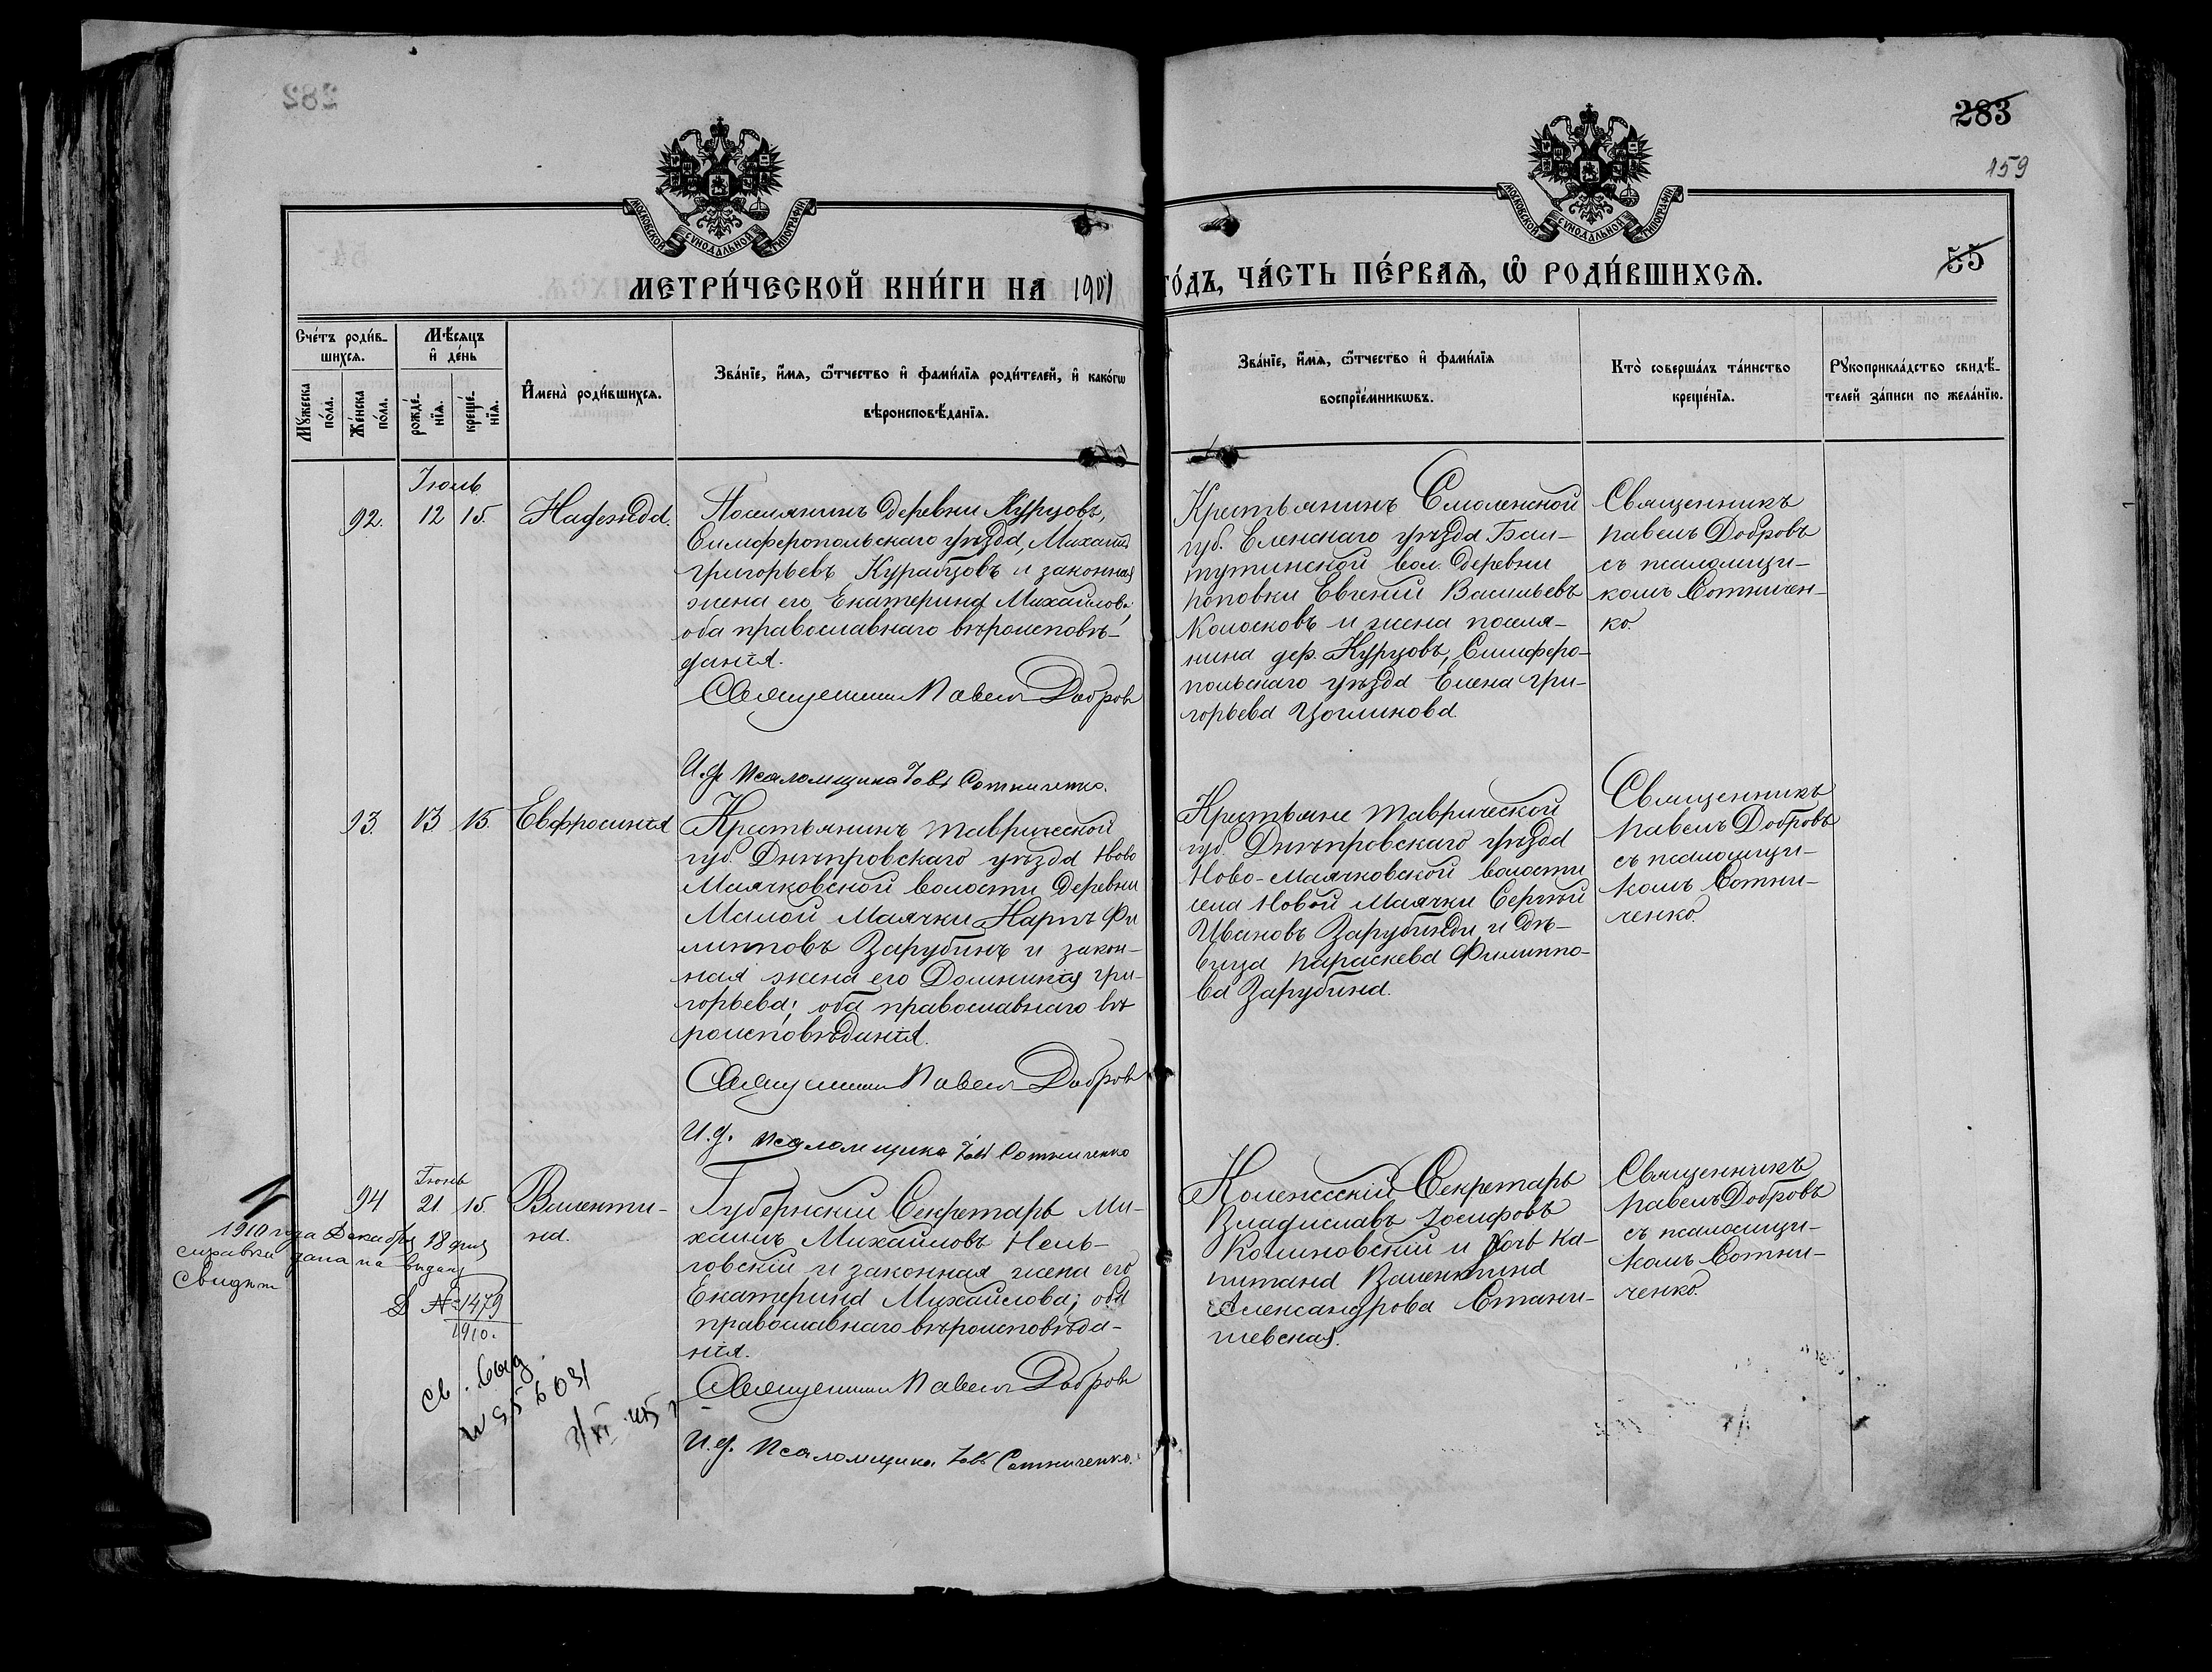 282
283
159
55
МОСКОВСКОЙ СѴНОДАЛЬНОЙ ТИПОГРАФІИ
МОСКОВСКОЙ СѴНОДАЛЬНОЙ ТИПОГРАФІИ
МЕТРИ́ЧЕСКОЙ КНИ́ГИ НА 1901
ГО́ДЪ, ЧА́СТЬ ПЕ́РВАѦ, Ѽ РОДИ́ВШИХСѦ.
Сче́тъ роди́в-
шихсѧ.
Мѣ́сѧцъ
и҆ де́нь
Мꙋ́жеска
по́ла.
Же́нска
по́ла.
рожде́-
нїѧ.
креще́-
нїѧ.
И҆мена̀ роди́вшихсѧ.
Зва́нїе, и҆́мѧ, ѻ҆́тчество и҆ фами́лїѧ роди́телей, и҆ како́гѡ
вѣроисповѣ́данїѧ.
Зва́нїе, и҆́мѧ, ѻ҆́тчество и҆ фами́лїѧ
воспрїе́мникѡвъ.
Кто̀ соверша́лъ та́инство
креще́нїѧ.
Рꙋкоприкла́дство свидѣ́-
телей за́писи по жела́нїю.
Іюль
92. 12 15. Надежда.
Поселянинъ деревни Курцовъ,
Симферопольскаго уѣзда, Михаилъ
Григорьевъ Курабцовъ и законная
жена его Екатерина Михайлова;
оба православнаго вѣроисповѣ-
данія.
Священникъ Павелъ Добровъ
И. д. Псаломщика Іовъ Сотниченко.
Крестьянинъ Смоленской
губ. Еленскаго уѣзда Бал-
тутинской вол. деревни
Поповки Евгеній Васильевъ
Колосковъ и жена поселя-
нина дер. Курцовъ, Симферо-
польскаго уѣзда Елена Гри-
горьева Цоглинова.
Священникъ
Павелъ Добровъ
съ псаломщи-
комъ Сотничен-
ко.
93. 13 15. Евфросинія
Крестьянинъ Таврической
губ. Днѣпровскаго уѣзда Ново
Маячковской волости деревни
Малой Маячки Карпъ Фи
липповъ Зарубинъ и закон-
ная жена его Домникія Гри-
горьева; оба православнаго вѣ
роисповѣданія.
Священникъ Павелъ Добровъ
И. д. Псаломщика Іовъ Сотниченко
Крестьяне Таврической
губ. Днѣпровскаго уѣзда
Ново-Маячковской волости
села Новой Маячки Сергѣй
Ивановъ Зарубинъ и дѣ-
вица Параскева Филиппо-
ва Зарубина.
Священникъ
Павелъ Добровъ
съ псаломщи-
комъ Сотни-
ченко.
Іюнь
94 21 15. Валенти-
на.
Губернскій Секретарь Ми-
хаилъ Михайловъ Нель-
говскій и законная жена его
Екатерина Михайлова; оба
православнаго вѣроисповѣда-
нія.
Священникъ Павелъ Добровъ
И. д. Псаломщика Іовъ Сотниченко.
Колежскій Секретарь
Владиславъ Іосифовъ
Калиновскій и дочь Ка-
питана Валентина
Александрова Стани-
шевская.
Священникъ
Павелъ Добровъ
съ псаломщи-
комъ Сотни-
ченко.
1910 года Декабря 18 дня
справка дана на выдачу
Свидѣт
Д №1479
1910.
св. выд.